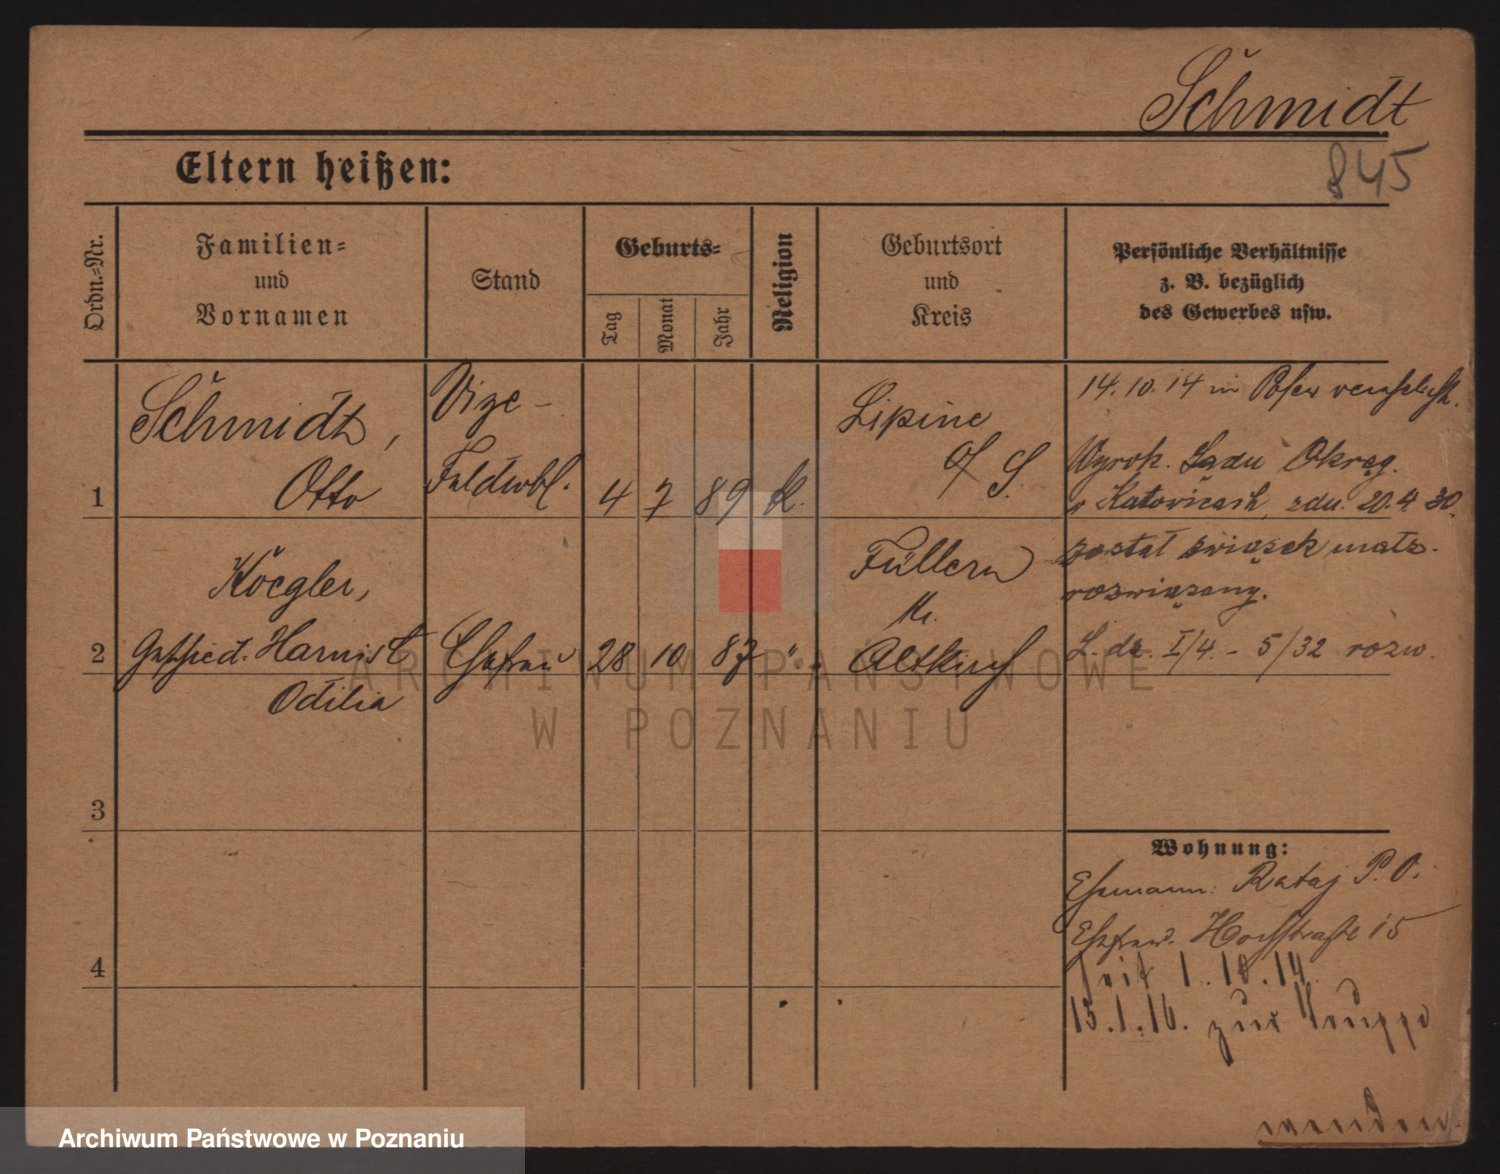 Schmidt
845
Eltern heißen:
Ordn.-Nr.
Familien-
und
Vornamen
Stand
Geburts-
Tag
Monat
Jahr
Religion
Geburtsort
und
Kreis
Persönliche Verhältnisse
z. B. bezüglich
des Gewerbes usw.
1
Schmidt,
Otto
Vize-
Feldwbl.
4 7 89 k.
Lipine
O/S.
14.10.14 in Posen verehelicht.
Wyrok. Sądu Okręg.
w Katowicach, zdn. 20.4 30.
został związek małż.
rozwiązany.
L. dz. I/4. - 5/32 rozw.
2
Koegler,
geschied. Harnist
Odilia
Ehefrau
28 10 87 "
Füllern
Kr.
Altkirch
3
4
Wohnung:
Ehemann: Rataj P. O.
Ehefrau. Hochstraße 15
seit 1.10.14.
15.1.16. zur Truppe
wenden
ARCHIWUM PAŃSTWOWE
W POZNANIU
Archiwum Państwowe w Poznaniu